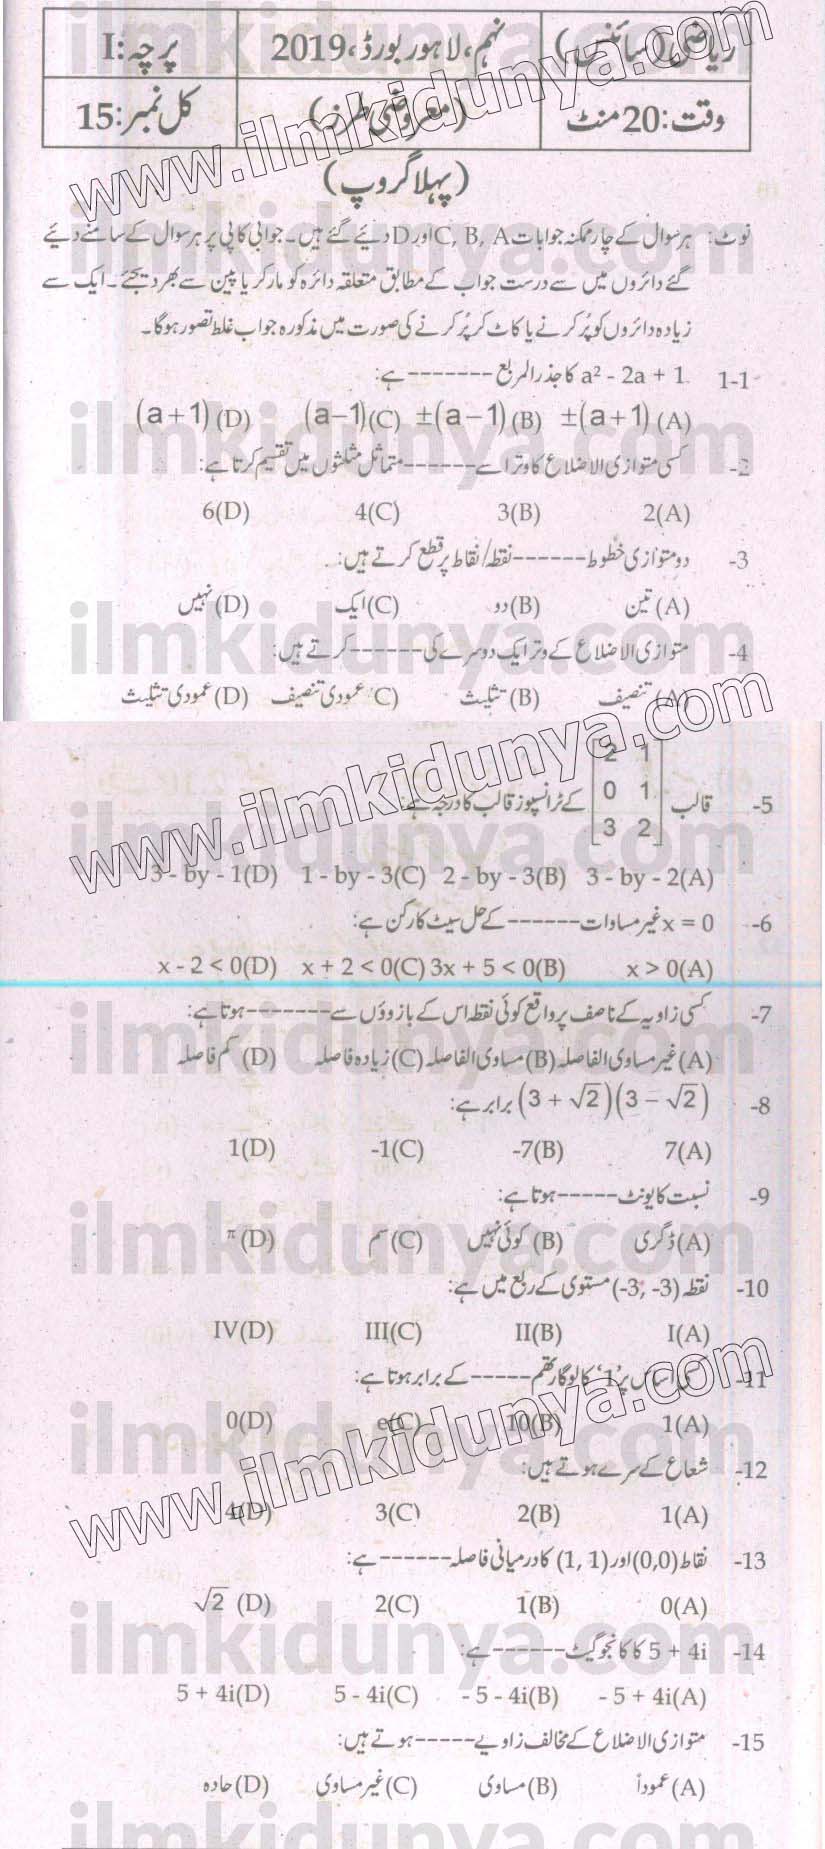 ریاضی (سائنس) نہم، لاہور بورڈ، 2019 پرچہ: I
وقت: 20 منٹ (معروضی طرز) کل نمبر: 15
(پہلا گروپ)
نوٹ: ہر سوال کے چار ممکنہ جوابات C, B, A اور D دیئے گئے ہیں۔ جوابی کاپی پر ہر سوال کے سامنے دیئے
گئے دائروں میں سے درست جواب کے مطابق متعلقہ دائرہ کو مارکر یا پین سے بھر دیجئے۔ ایک سے
زیادہ دائروں کو پُر کرنے یا کاٹ کر پُر کرنے کی صورت میں مذکورہ جواب غلط تصور ہوگا۔
1-1 a² - 2a + 1 کا جذر المربع ------- ہے:
(A) ±(a+1) (B) ±(a−1) (C) (a−1) (D) (a+1)
-2 کسی متوازی الاضلاع کا وتر اسے ------ متماثل مثلثوں میں تقسیم کرتا ہے:
2(A) 3(B) 4(C) 6(D)
-3 دو متوازی خطوط ------ نقطہ/نقاط پر قطع کرتے ہیں:
(A) تین (B) دو (C) ایک (D) نہیں
-4 متوازی الاضلاع کے وتر ایک دوسرے کی ------ کرتے ہیں:
(A) تنصیف (B) تثلیث (C) عمودی تنصیف (D) عمودی تثلیث
-5 قالب [2 1
0 1
3 2] کے ٹرانسپوز قالب کا درجہ ہے:
3 - by - 2(A) 2 - by - 3(B) 1 - by - 3(C) 3 - by - 1(D)
-6 x = 0 غیر مساوات ------ کے حل سیٹ کا رکن ہے:
x > 0(A) 3x + 5 < 0(B) x + 2 < 0(C) x - 2 < 0(D)
-7 کسی زاویہ کے ناصف پر واقع کوئی نقطہ اس کے بازوؤں سے ------- ہوتا ہے:
(A) غیر مساوی الفاصلہ (B) مساوی الفاصلہ (C) زیادہ فاصلہ (D) کم فاصلہ
-8 (3 + √2)(3 − √2) برابر ہے:
7(A) -7(B) -1(C) 1(D)
-9 نسبت کا یونٹ ----- ہوتا ہے:
(A) ڈگری (B) کوئی نہیں (C) سم (D) π
-10 نقطہ (-3, -3) مستوی کے ربع میں ہے:
I(A) II(B) III(C) IV(D)
-11 اساس پر '1' کا لوگارتھم ----- کے برابر ہوتا ہے:
1(A) 10(B) e(C) 0(D)
-12 شعاع کے سرے ہوتے ہیں:
1(A) 2(B) 3(C) 4(D)
-13 نقاط (0,0) اور (1, 1) کا درمیانی فاصلہ ------ ہے:
0(A) 1(B) 2(C) √2 (D)
-14 5 + 4i کا کانجوگیٹ ------ ہے:
- 5 + 4i(A) - 5 - 4i(B) 5 - 4i(C) 5 + 4i(D)
-15 متوازی الاضلاع کے مخالف زاویے ----- ہوتے ہیں:
(A) عموداً (B) مساوی (C) غیر مساوی (D) حادہ
www.ilmkidunya.com
ilmkidunya.com